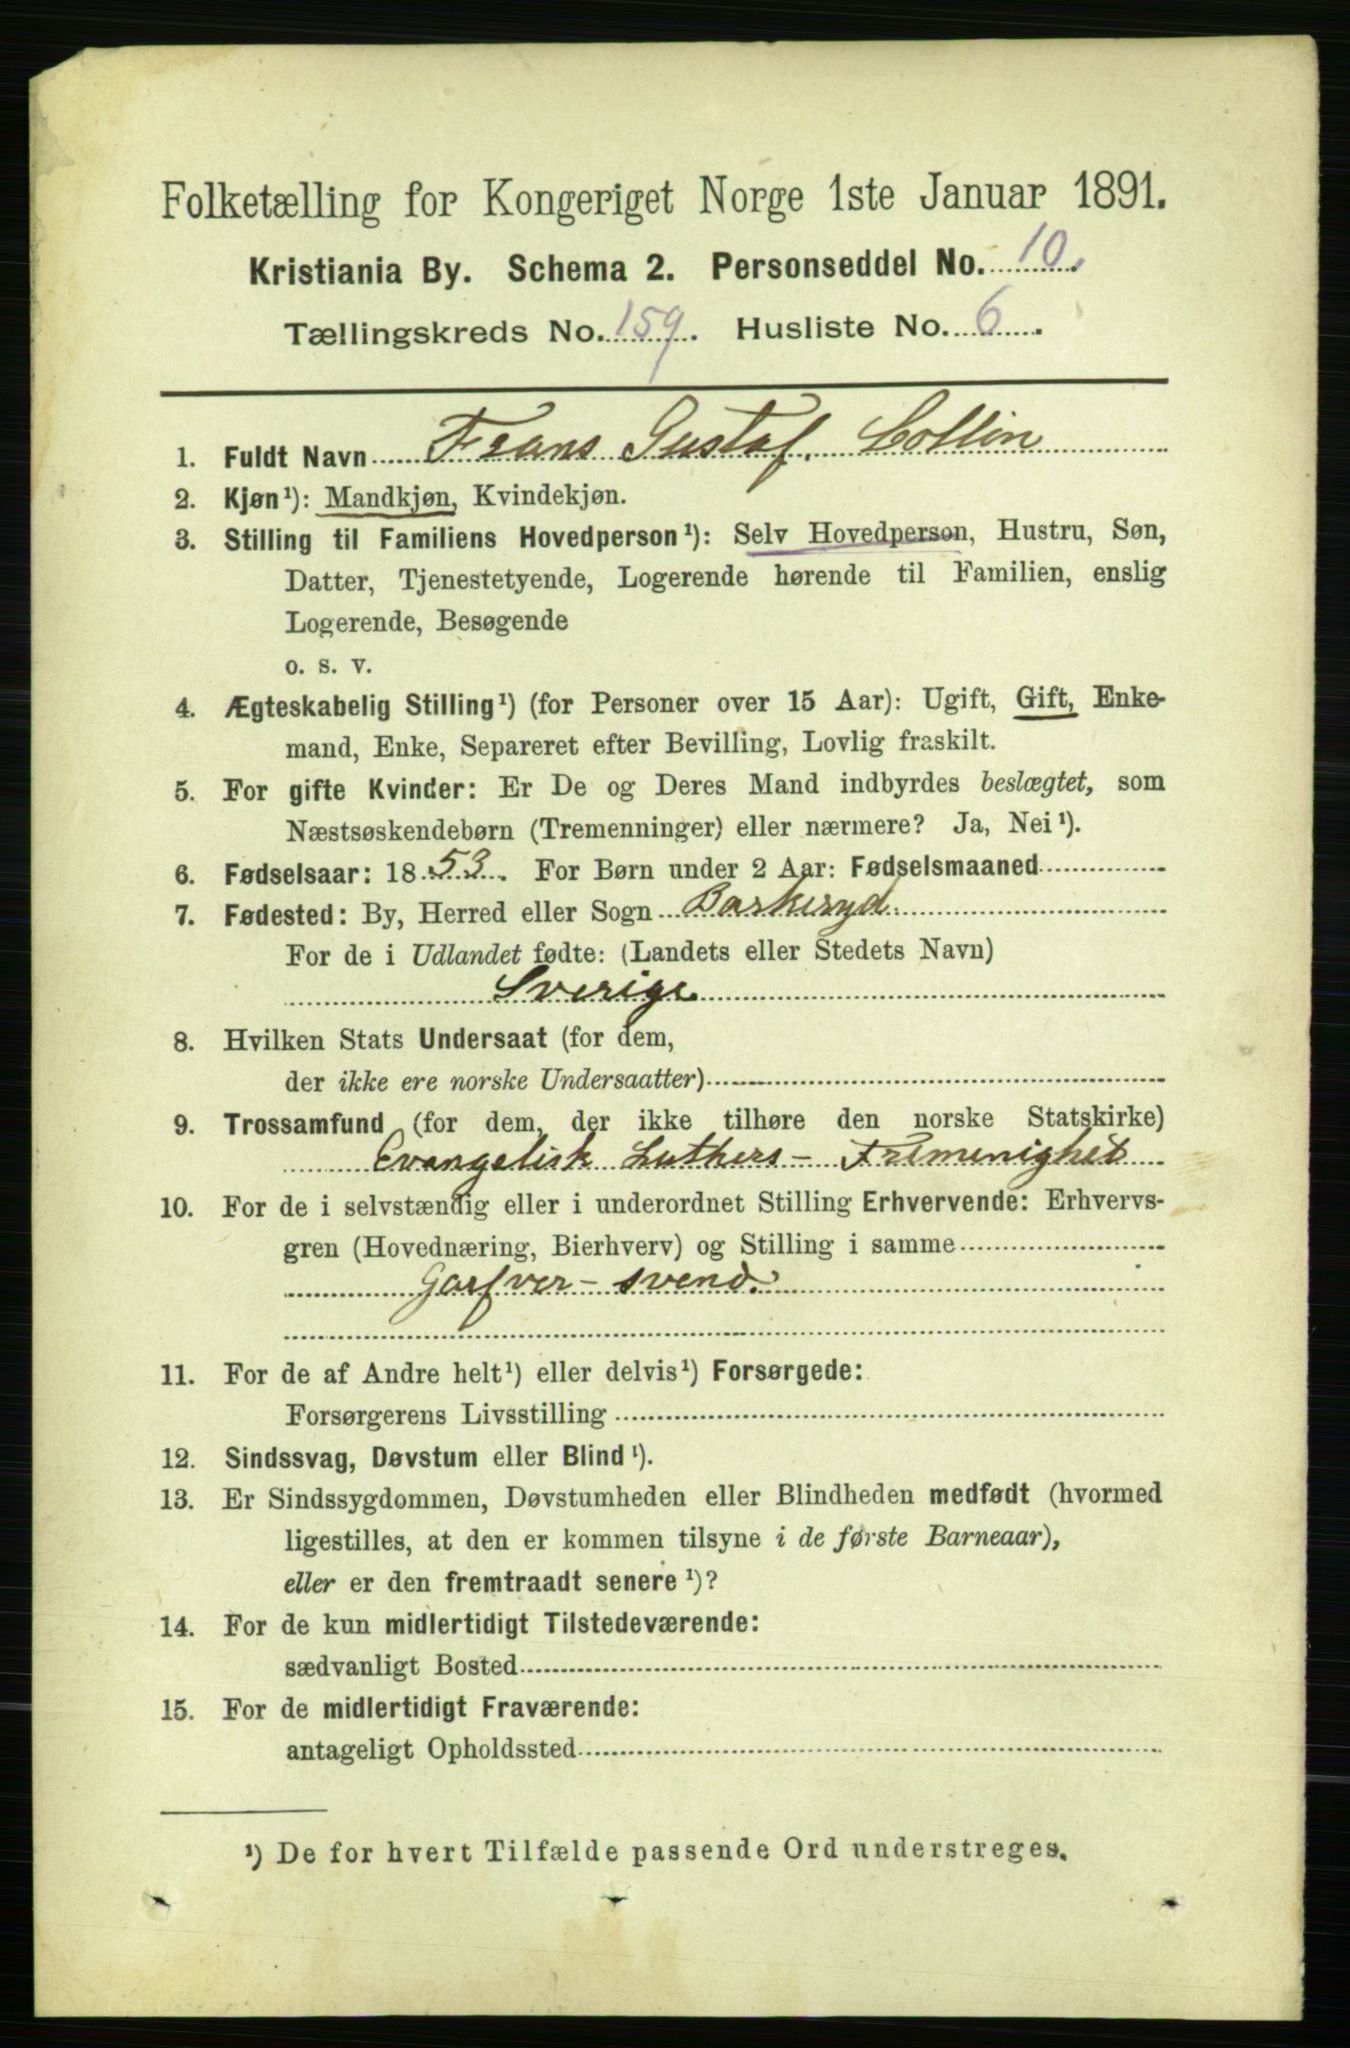 Folketælling for Kongeriget Norge 1ste Januar 1891.
Kristiania By. Schema 2. Personseddel No. 10.
Tællingskreds No. 159. Husliste No. 6.
1. Fuldt Navn Frans Gustaf. Collin
2. Kjøn¹): Mandkjøn, Kvindekjøn.
3. Stilling til Familiens Hovedperson¹): Selv Hovedperson, Hustru, Søn,
Datter, Tjenestetyende, Logerende hørende til Familien, enslig
Logerende, Besøgende
o. s. v.
4. Ægteskabelig Stilling¹) (for Personer over 15 Aar): Ugift, Gift, Enke-
mand, Enke, Separeret efter Bevilling, Lovlig fraskilt.
5. For gifte Kvinder: Er De og Deres Mand indbyrdes beslægtet, som
Næstsøskendebørn (Tremenninger) eller nærmere? Ja, Nei¹).
6. Fødselsaar: 1853. For Børn under 2 Aar: Fødselsmaaned
7. Fødested: By, Herred eller Sogn Barkeryd.
For de i Udlandet fødte: (Landets eller Stedets Navn)
Sverige.
8. Hvilken Stats Undersaat (for dem,
der ikke ere norske Undersaatter)
9. Trossamfund (for dem, der ikke tilhøre den norske Statskirke)
Evangelisk Luthers - Frimenighet
10. For de i selvstændig eller i underordnet Stilling Erhvervende: Erhvervs-
gren (Hovednæring, Bierhverv) og Stilling i samme
Garfver - svend.
11. For de af Andre helt¹) eller delvis¹) Forsørgede:
Forsørgerens Livsstilling
12. Sindssvag, Døvstum eller Blind¹).
13. Er Sindssygdommen, Døvstumheden eller Blindheden medfødt (hvormed
ligestilles, at den er kommen tilsyne i de første Barneaar),
eller er den fremtraadt senere¹)?
14. For de kun midlertidigt Tilstedeværende:
sædvanligt Bosted
15. For de midlertidigt Fraværende:
antageligt Opholdssted
¹) De for hvert Tilfælde passende Ord understreges.